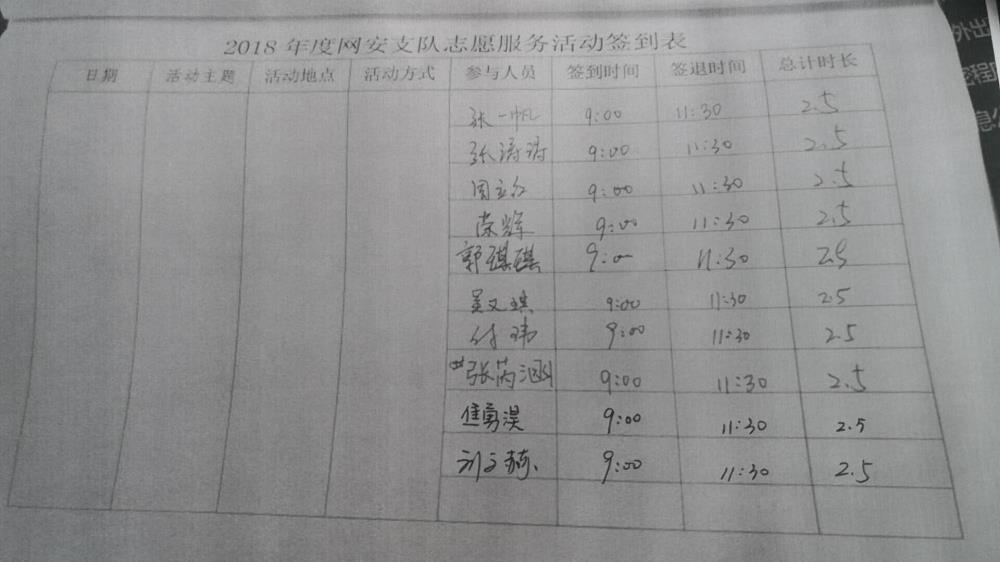 2018 年度网安支队志愿服务活动签到表
日期 活动主题 活动地点 活动方式 参与人员 签到时间 签退时间 总计时长
张一帆 9:00 11:30 2.5
张涛涛 9:00 11:30 2.5
周立红 9:00 11:30 2.5
荣辉 9:00 11:30 2.5
郭琪琪 9:00 11:30 2.5
吴文琪 9:00 11:30 2.5
付玮 9:00 11:30 2.5
张芮涵 9:00 11:30 2.5
9:00 11:30 2.5
刘文赫 9:00 11:30 2.5
外出